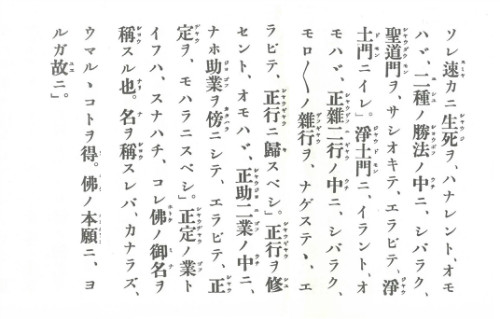 ソレ速カニ生死ヲ、ハナレント、オモ
ハヾ、二種ノ勝法ノ中ニ、シバラク、
聖道門ヲ、サシオキテ、エラビテ、淨
土門ニイレ。淨土門ニ、イラント、オ
モハヾ、正雜二行ノ中ニ、シバラク、
モロ〱ノ雜行ヲ、ナゲステヽ、エ
ラビテ、正行ニ歸スベシ。正行ヲ修
セント、オモハヾ、正助二業ノ中ニ、
ナホ助業ヲ傍ニシテ、エラビテ、正
定ヲ、モハラニスベシ。正定ノ業ト
イフハ、スナハチ、コレ佛ノ御名ヲ
稱スル也。名ヲ稱スレバ、カナラズ、
ウマルヽコトヲ得。佛ノ本願ニ、ヨ
ルガ故ニ。」